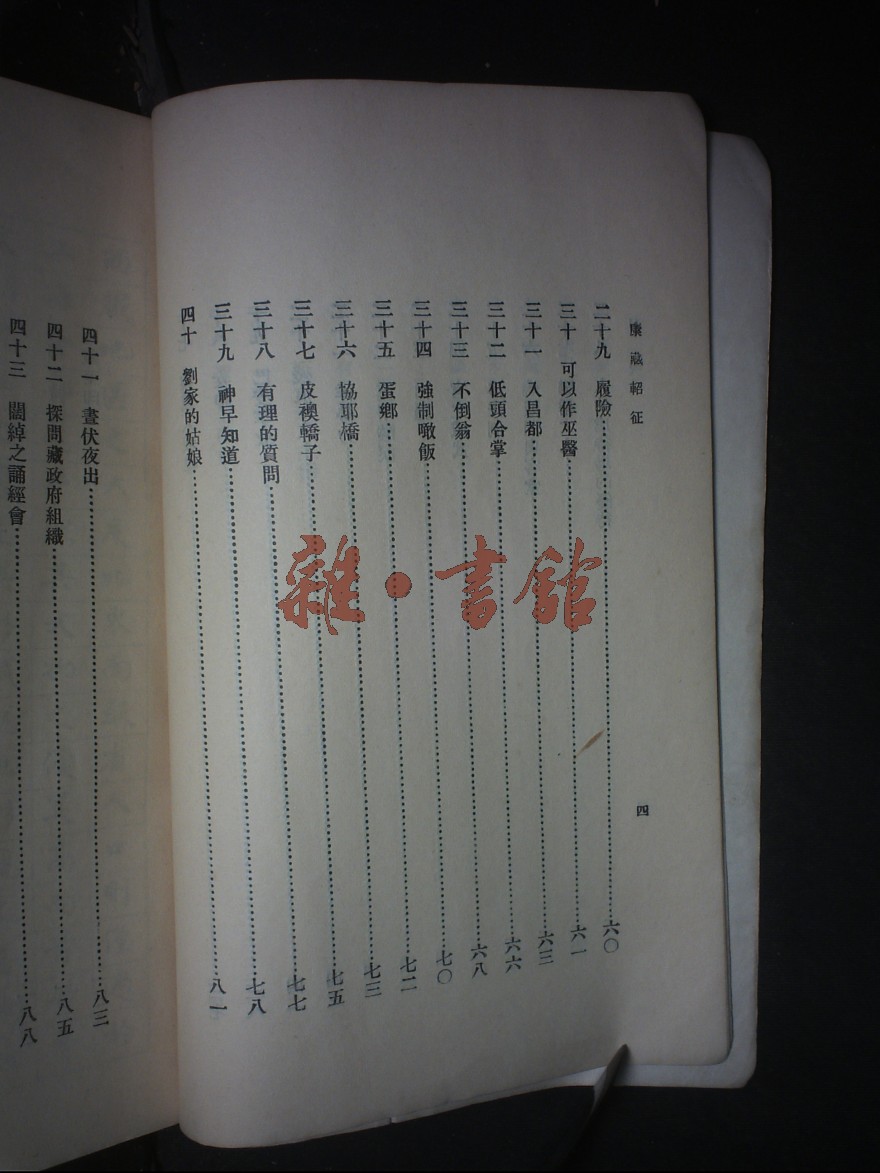 康藏軺征
四
二十九 履險……六〇
三十 可以作巫醫……六一
三十一 入昌都……六三
三十二 低頭合掌……六六
三十三 不倒翁……六八
三十四 強制噉飯……七〇
三十五 蛋鄉……七二
三十六 協耶橋……七三
三十七 皮襖轎子……七五
三十八 有理的質問……七七
三十九 神早知道……七八
四十 劉家的姑娘……八一
四十一 晝伏夜出……八三
四十二 探問藏政府組織……八五
四十三 闊綽之誦經會……八八
雜·書館